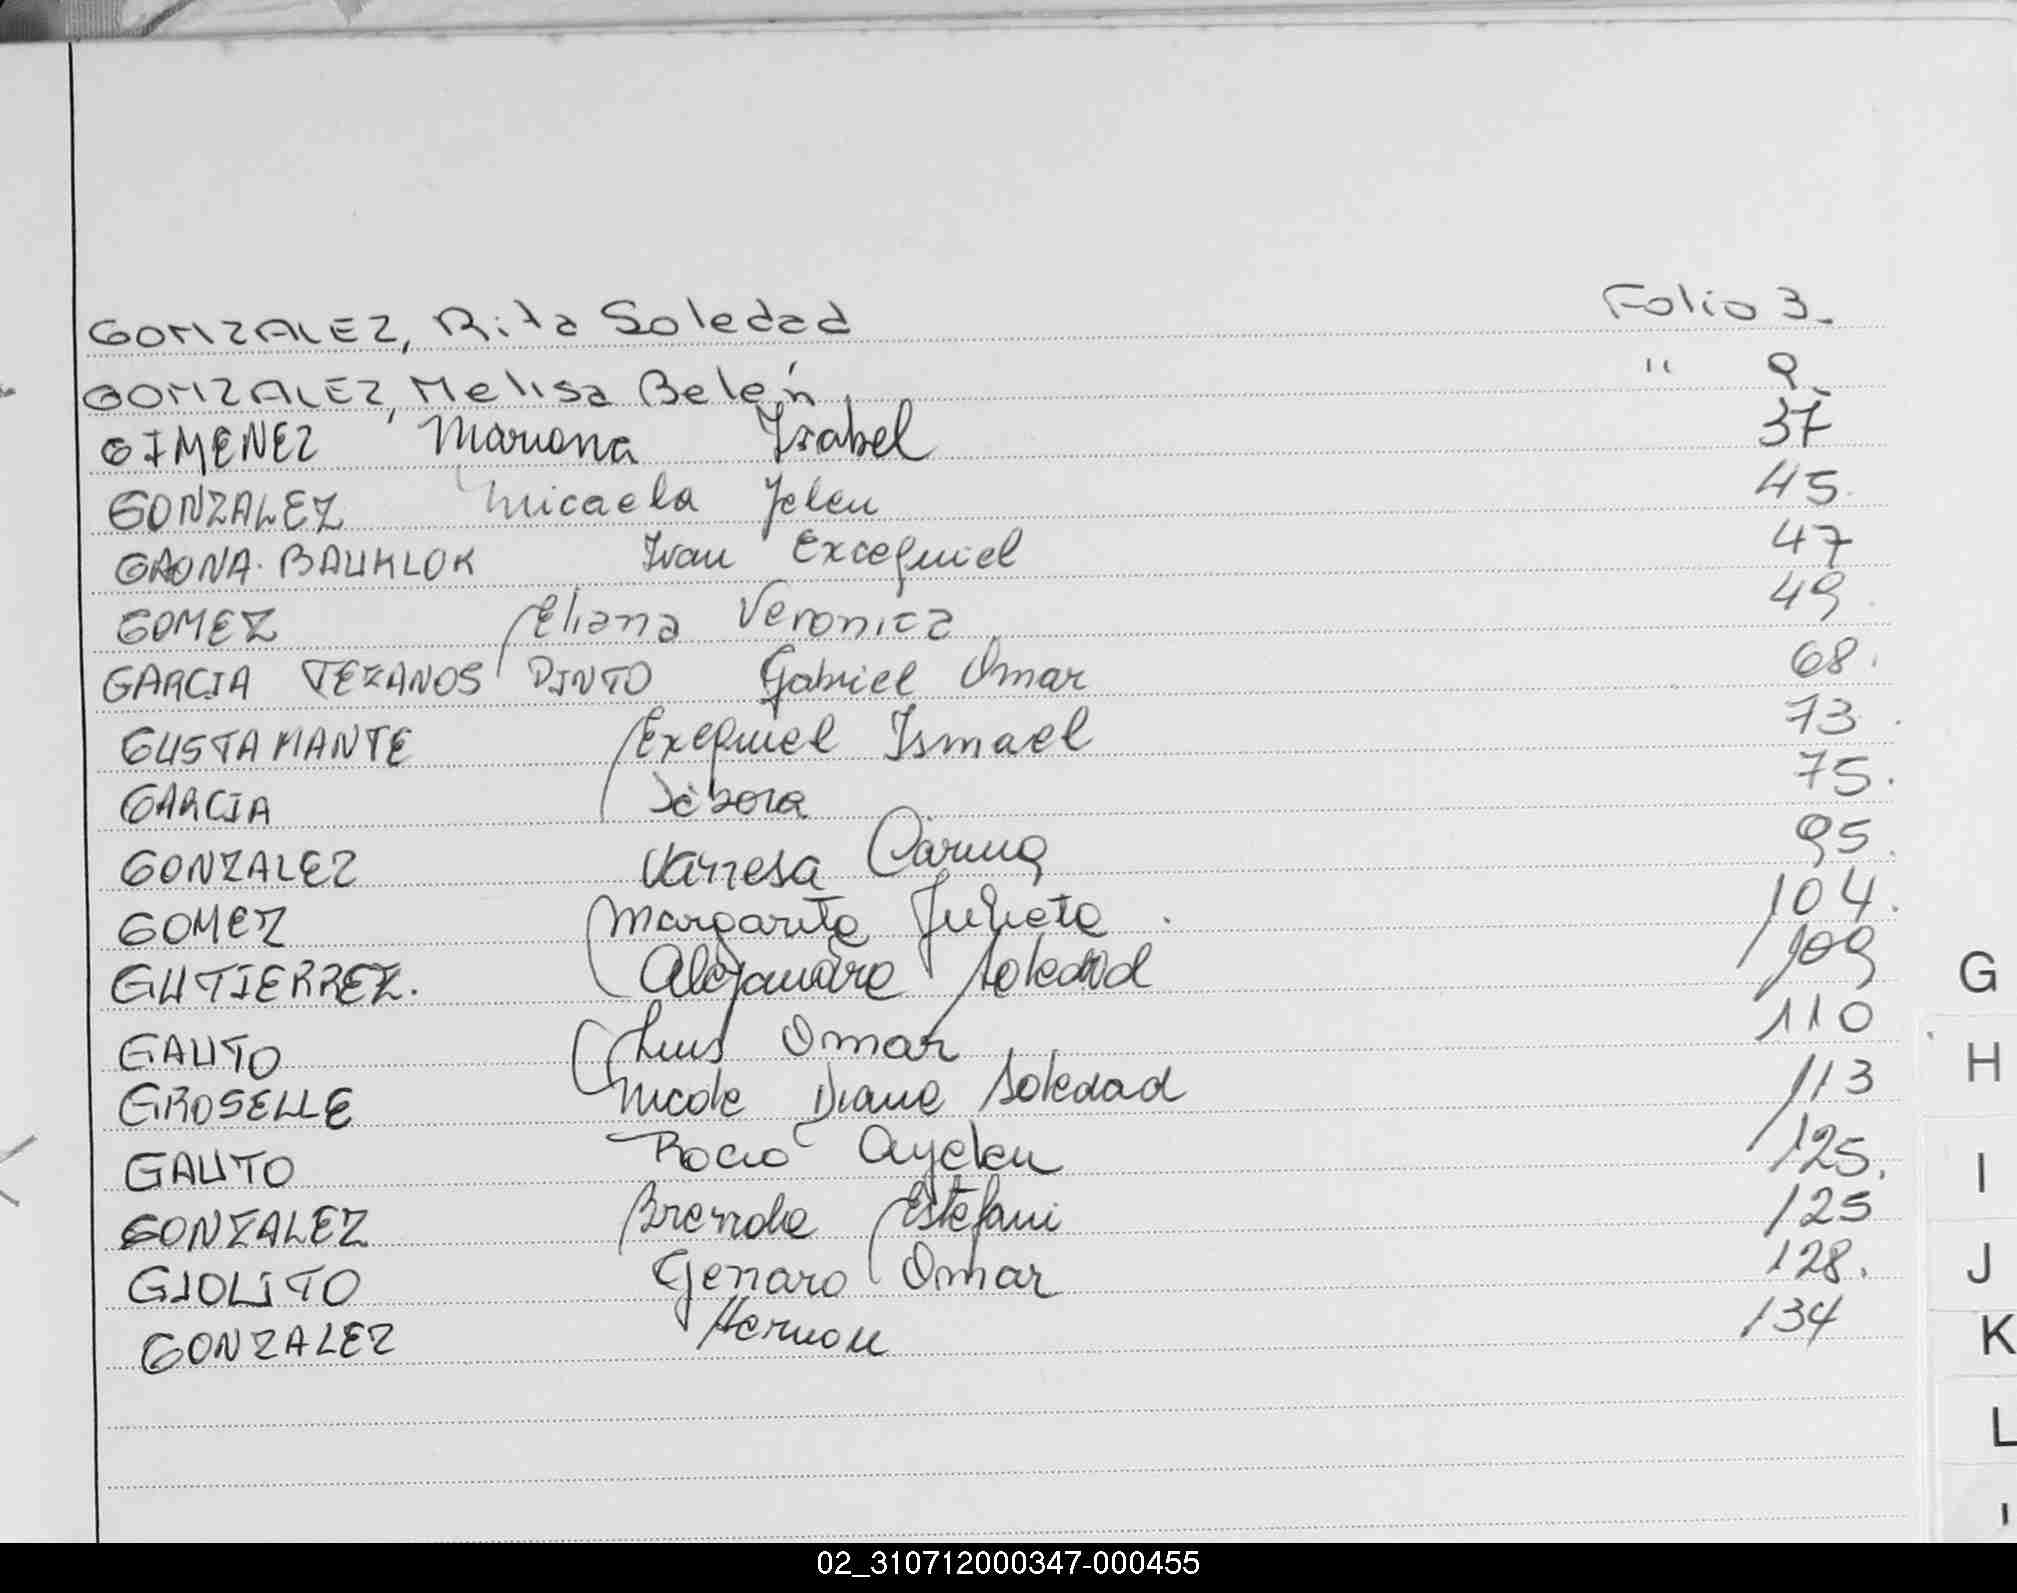 GONZALEZ, Rita Soledad Folio 3.
GONZALEZ, Melisa Belén " 9.
GIMENEZ Mariana Isabel 37
GONZALEZ Micaela Jelen 45.
GAONA. BAUKLOK Ivan Excequiel 47
GOMEZ Eliana Veronica 49.
GARCIA TEZANOS PINTO Gabriel Omar 68.
GUSTAMANTE Exequiel Ismael 73.
GARCIA Débora 75.
GONZALEZ Vanesa Carina 95.
GOMEZ Margarita Julieta. 104.
GUTIERREZ. Alejandra Soledad 109
GAUTO Luis Omar 110
GROSELLE Nicole Diane Soledad 113
GAUTO Rocio Ayelen 125.
GONZALEZ Brenda Estefani 125
GIOLITO Genaro Omar 128.
GONZALEZ Hernan 134
G
H
I
J
K
L
02_310712000347-000455